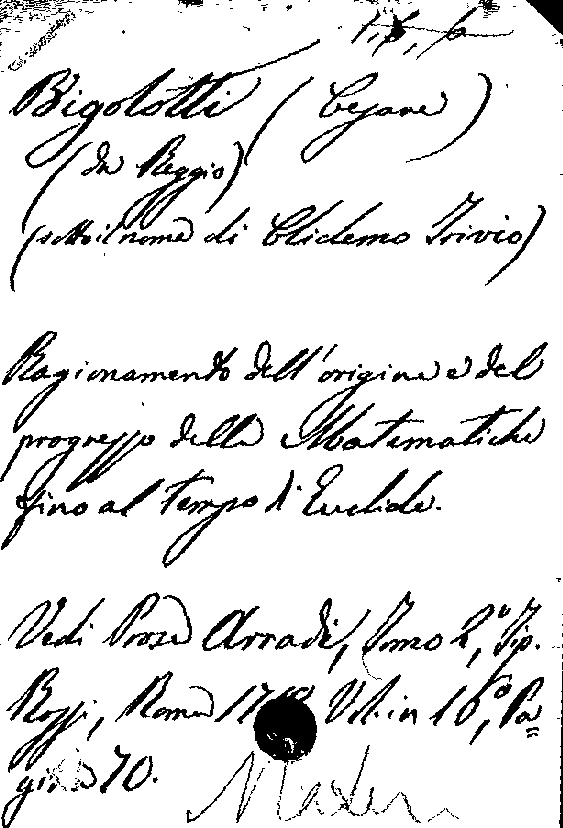 Bigolotti (Cesare)
(da Reggio)
(sotto il nome di Clidemo Trivio)
Ragionamento dell'origine e del
progresso delle Matematiche
fino al tempo di Euclide.
Vedi Prose Arcadi, Tomo 2,° Tip.
Rossi, Roma Vol. in 16°, Pa=
gina 70.